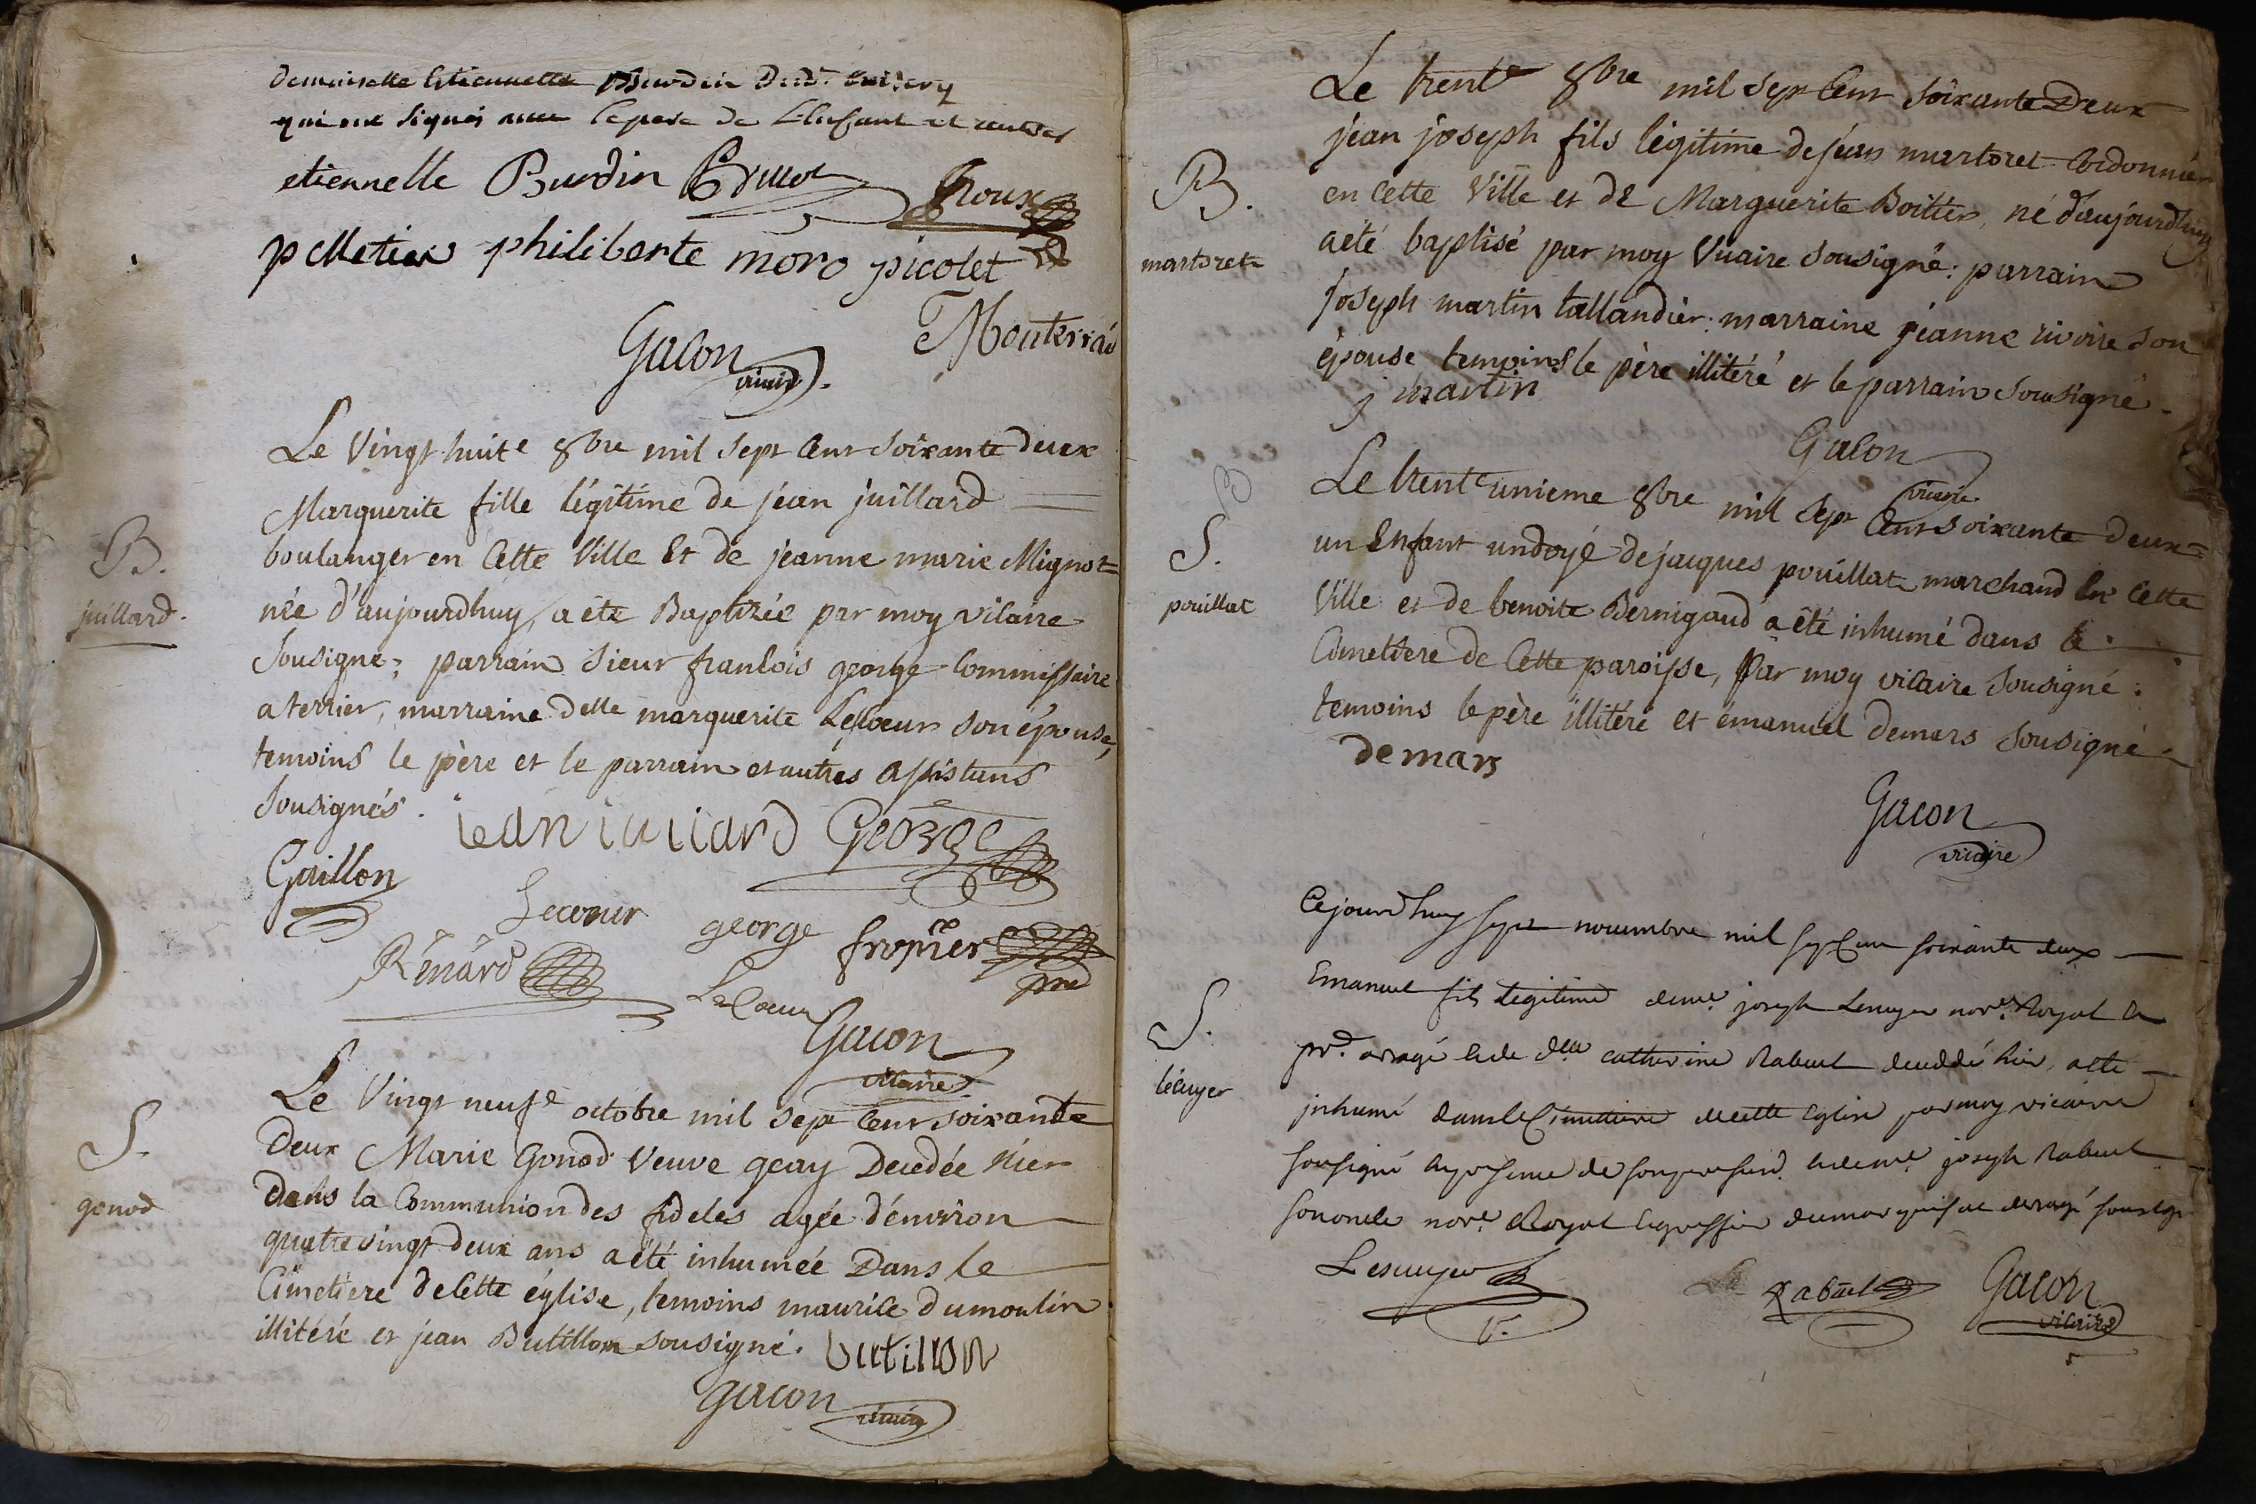 demoiselle Etiennette Burdin
qui ont signés avec le pere de L'Enfant et autres
etiennelle Burdin Roux
pelletier philiberte moro picolet
Gacon Monterrad
vicaire
Le Vingt huite 8bre mil sept Cent soixante deux
B.
juillard.
Marguerite fille légitime de jéan juillard
boulanger en Cette Ville Et de jeanne marie Mignot
née d'aujourdhuy, a été Baptisée par moy vicaire
sousigné; parrain sieur francois george Commissaire
a terrier, marraine delle marguerite Lecoeur son épouse,
temoins le père et le parrain et autres assistans
sousignés.
iean iuiiard George
Guillon
Lecoeur george fropier
Renard LeCoeur
Gacon
vicaire
S.
gonod
Le Vingt neufe octobre mil sept Cent soixante
deux Marie Gonod veuve geay Decedée hier
dans la Communion des fideles agée d'environ
quatre vingt deux ans a été inhumée Dans le
Cimetiere de Cette église, temoins maurice dumoulin
illitéré et jean Butillon sousigné. butillon
Gacon
vicaire
B.
martoret
Le trente 8bre mil sept Cent soixante Deux
jean joseph fils légitime de jéan martoret Cordonnier
en Cette Ville et de Marguerite Boittier, né d'aujourdhuy
a été baptisé par moy Vicaire sousigné: parrain
joseph martin tallandier: marraine jeanne rivoire son
épouse temoins le père illitéré et le parrain sousigné.
j martin
Gacon
vicaire
B
S.
pouillat
Le trente unieme 8bre mil sept Cent soixante deux
un Enfant undoyé de jacques pouillat marchand En Cette
Ville et de benoite Bernigaud a été inhumé dans le
Cimetiere de Cette paroisse, par moy vicaire sousigné:
temoins le père illitéré et émanuel demars sousigné.
demars
Gacon
vicaire
S.
lécuyer
Cejourdhuy sept novembre mil sept Cent soixante deux
Emanuel fils legitime de me joseph Lecuyer nore Royal et
pr. et de dlle catherine Rabuel deceddé hier, a été
inhumé dans le Cimettiere de cette Eglise par moy vicaire
sousigné en presence de son pere et de me joseph Rabuel
son oncle nore Royal et greffier du marquisat
Lescuyer Rabuel Gacon
vicaire